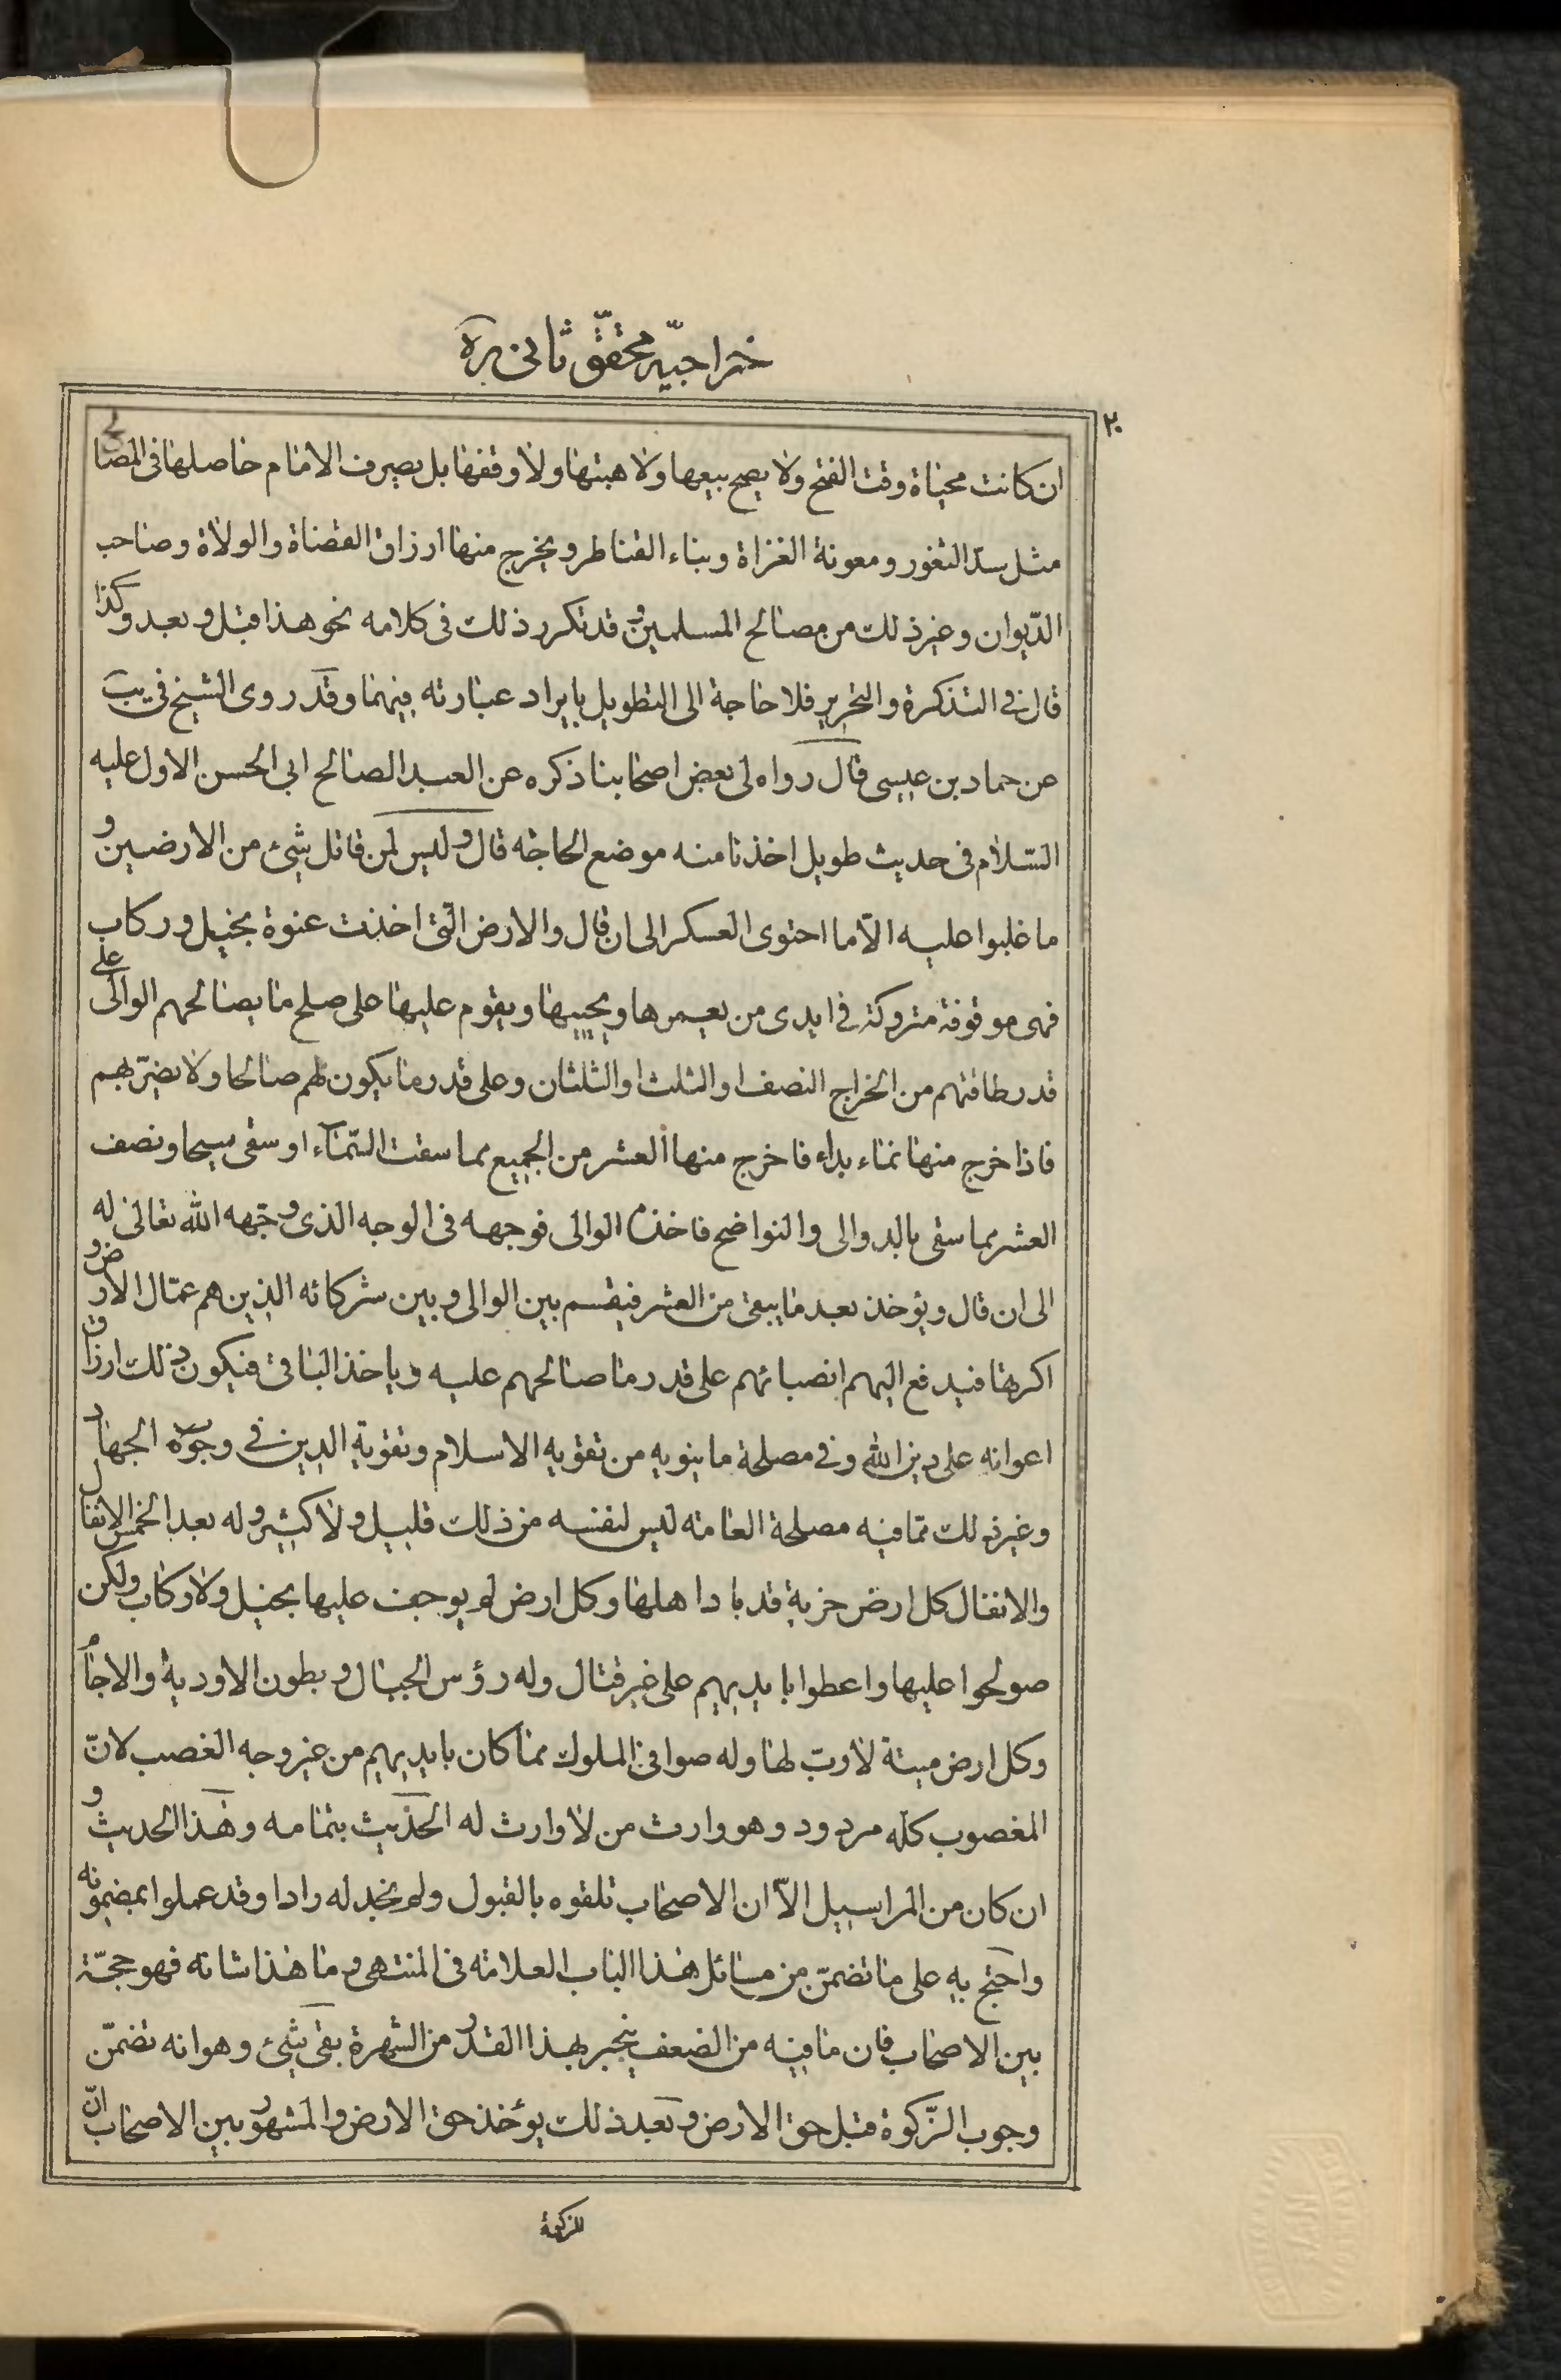 خراجيّه محقّق ثانى ره
٢٠
ان كانت محياة وقت الفتح ولا يصح بيعها ولا هبتها ولا وقفها بل يصرف الامام حاصلها فى المصالح
مثل سدّ الثغور ومعونة الغزاة وبناء القناطر ويخرج منها ارزاق القضاة والولاة وصاحب
الدّيوان وغير ذلك من مصالح المسلمين وقد تكرر ذلك فى كلامه نحو هذا قبل وبعد وكذا
قال فى التذكرة والتحرير فلا حاجة الى التطويل بايراد عبارته فيهما وقد روى الشيخ فى يب
عن حماد بن عيسى قال رواه لى بعض اصحابنا ذكره عن العبد الصالح ابى الحسن الاول عليه
السّلام فى حديث طويل اخذنا منه موضع الحاجة قال وليس لمن قاتل شئ من الارضين و
ما غلبوا عليه الّا ما احتوى العسكر الى ان قال والارض الّتى اخذت عنوة بخيل وركاب
فهى موقوفة متروكة فى ايدى من يعمرها ويحييها ويقوم عليها على صلح ما يصالحهم الوالى على
قدر طاقتهم من الخراج النصف او الثلث او الثلثان وعلى قدر ما يكون لهم صالحا ولا يضرّ بهم
فاذا خرج منها نماء بداء فاخرج منها العشر من الجميع مما سقت السّماء او سقى سيحا ونصف
العشر مما سقى بالدوالى والنواضح فاخذه الوالى فوجهه فى الوجه الذى وجّهه الله تعالى له
الى ان قال ويؤخذ بعد ما يبقى من العشر فيقسم بين الوالى وبين شركائه الذين هم عمّال الارض و
اكرتها فيدفع اليهم انصبائهم على قدر ما صالحهم عليه وياخذ الباقى فيكون ذلك ارزاق
اعوانه على دين الله وفى مصلحة ما ينويه من تقويه الاسلام وتقوية الدين فى وجوه الجهاد
وغير ذلك ممّا فيه مصلحة العامة ليس لنفسه من ذلك قليل ولا كثير وله بعد الخمس الانفال
والانفال كل ارض خربة قد باد اهلها وكل ارض لم يوجف عليها بخيل ولا ركاب ولكن
صولحوا عليها واعطوا بايديهم على غير قتال وله رؤس الجبال وبطون الاودية والاجام
وكل ارض ميتة لا ربّ لها وله صوافى الملوك مما كان بايديهم من غير وجه الغصب لانّ
المغصوب كلّه مردود وهو وارث من لا وارث له الحديث بتمامه وهذا الحديث و
ان كان من المراسيل الّا ان الاصحاب تلقوه بالقبول ولم نجد له رادا وقد عملوا بمضمونه
واحتج به على ما تضمّن من مسائل هذا الباب العلامة فى المنتهى وما هذا شانه فهو حجّة
بين الاصحاب فان ما فيه من الضعف ينجبر بهذا القدر من الشهرة بقى شئ وهو انه تضمّن
وجوب الزّكوة قبل حق الارض وبعد ذلك يؤخذ حق الارض والمشهور بين الاصحاب انّ
الزكوة